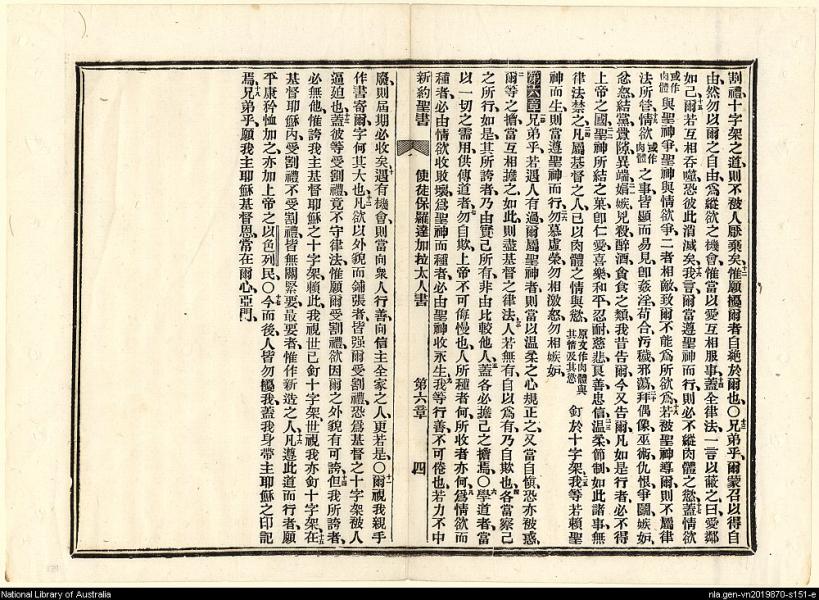 割禮十字架之道則不被人厭棄矣惟願擾爾者自絕於爾也〇兄弟乎爾蒙召以得自
由然勿以爾之自由爲縱欲之機會惟當以愛互相服事蓋全律法一言以蔽之曰愛鄰
如己爾若互相吞噬恐彼此消滅矣我言爾當遵聖神而行則必不縱肉體之慾蓋情欲
或作肉體與聖神爭聖神與情欲爭二者相敵致爾不能爲所欲爲若被聖神導爾則不屬律
法所管情欲或作肉體之事皆顯而易見卽姦淫苟合污穢邪蕩拜偶像巫術仇恨爭鬬嫉妒
忿怒結黨釁隙異端娼嫉兇殺醉酒貪食之類我昔告爾今又告爾凡如是行者必不得
上帝之國聖神所結之菓卽仁愛喜樂和平忍耐慈悲良善忠信溫柔節制如此諸事無
律法禁之凡屬基督之人已以肉體之情與慾原文作肉體與其情及其慾釘於十字架我等若賴聖
神而生則當遵聖神而行勿慕虛榮勿相激怒勿相嫉妒
第六章兄弟乎若遇人有過爾屬聖神者則當以溫柔之心規正之又當自慎恐亦被惑
爾等之擔當互相擔之如此則盡基督之律法人若無有自以爲有乃自欺也各當察己
之所行如是其所誇者乃由實己所有非由比較他人蓋各必擔己之擔焉〇學道者當
以一切之需用供傳道者勿自欺上帝不可侮慢也人所種者何所收者亦何爲情欲而
種者必由情欲收敗壞爲聖神而種者必由聖神收永生我等行善不可倦也若力不中
新約聖書　使徒保羅達加拉太人書　第六章　四
廢則屆期必收矣遇有機會則當向衆人行善向信主全家之人更若是〇爾視我親手
作書寄爾字何其大也凡欲以外貌而鋪張者皆强爾受割禮恐爲基督之十字架被人
逼迫也蓋彼等受割禮竟不守律法惟願爾受割禮欲因爾之外貌有可誇但我所誇者
必無他惟誇我主基督耶穌之十字架賴此我視世已釘十字架世視我亦釘十字架在
基督耶穌內受割禮不受割禮皆無關緊要最要者惟作新造之人凡遵此道而行者願
平康矜恤加之亦加上帝之以色列民〇今而後人皆勿擾我蓋我身帶主耶穌之印記
焉兄弟乎願我主耶穌基督恩常在爾心亞門
National Library of Australia
nla.gen-vn2019870-s151-e